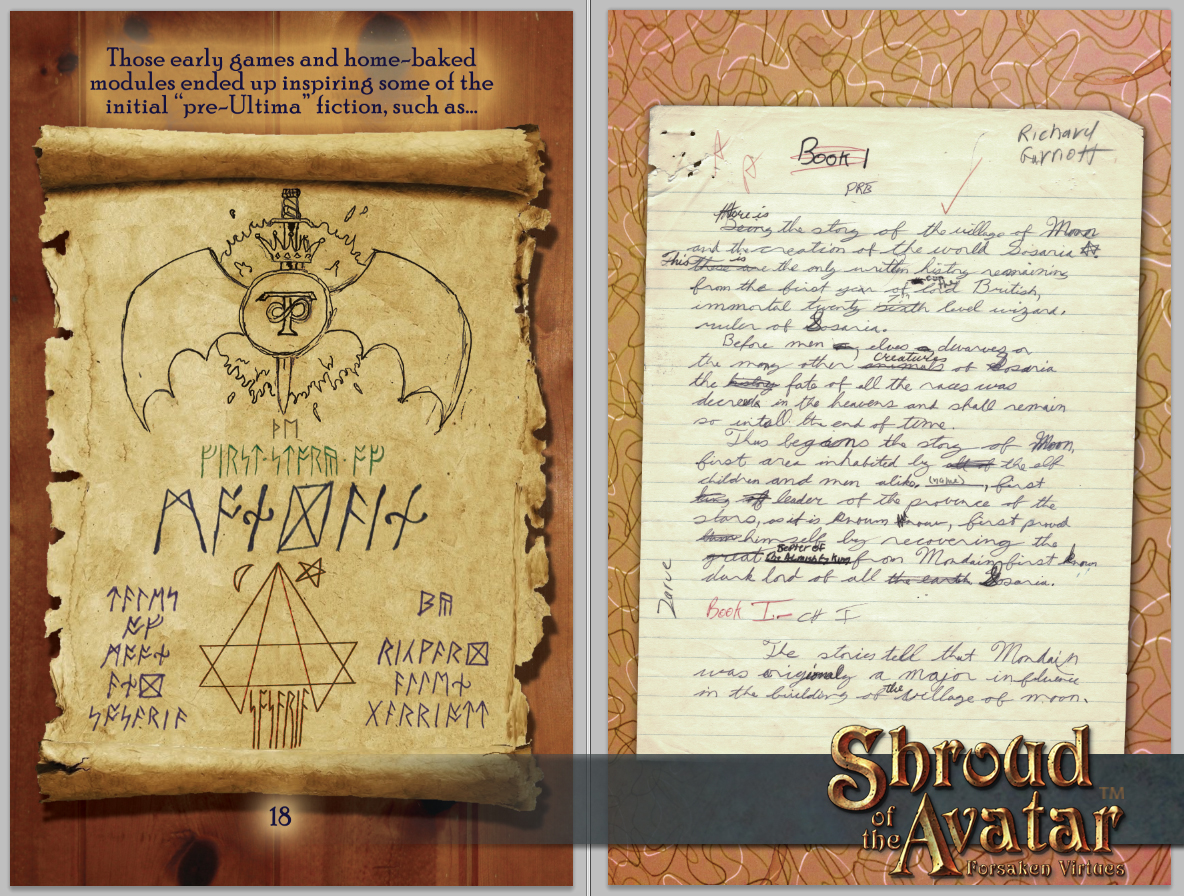 Those early games and home-baked
modules ended up inspiring some of the
initial “pre-Ultima” fiction, such as...
ᚦᛖ
ᚠᛁᚱᛋᛏ·ᛋᛏᚩᚱᚣ·ᚩᚠ
ᛗᚩᚾᛞᚨᛁᚾ
ᛏᚨᛚᛖᛋ
ᚩᚠ
ᛗᚩᚩᚾ
ᚨᚾᛞ
ᛋᚩᛋᚨᚱᛁᚨ
ᛋᚩᛋᚨᚱᛁᚨ
ᛒᚣ
ᚱᛁᚳᚻᚨᚱᛞ
ᚨᛚᛚᛖᚾ
ᚷᚨᚱᚱᛁᚩᛏᛏ
18
Richard
Garriott
Book 1
PRE
there is
Being the story of the village of Moon
and the creation of the world Sosaria
This is
these are the only written history remaining
from the first year of lord British,
immortal twenty sixth level wizard,
ruler of Sosaria.
Before men, elves, dwarves or
creatures
the many other animals of Sosaria
the history fate of all the races was
decreed in the heavens and shall remain
so intell the end of time.
Thus begains the story of Moon,
first area inhabited by the elf
children and men alike. (name), first
king of leader of the provence of the
stars, as it is known know, first proud
himself by recovering the
Septer of
great the Almighty King from Mondain first known
dark lord of all the earth Sosaria.
Book I - CH I
The stories tell that Mondain
was originaly a major influence
in the building of the village of moon.
Shroud
of the Avatar™
Forsaken Virtues